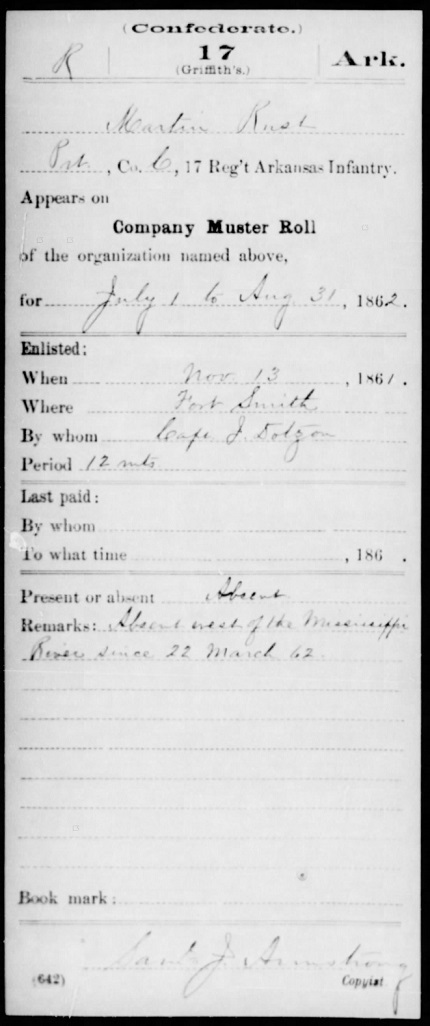 (Confederate.)
R 17 Ark.
(Griffith's.)
Martin Rust
Pvt., Co. C, 17 Reg't Arkansas Infantry.
Appears on
Company Muster Roll
of the organization named above,
for July 1 to Aug 31, 1862.
Enlisted:
When Nov. 13, 1861.
Where Fort Smith
By whom Capt J. Dotson
Period 12 mts
Last paid:
By whom
To what time , 186 .
Present or absent Absent
Remarks: Absent west of the Mississippi
River since 22 March 62.
Book mark:
Saml J. Armstrong
(642) Copyist.